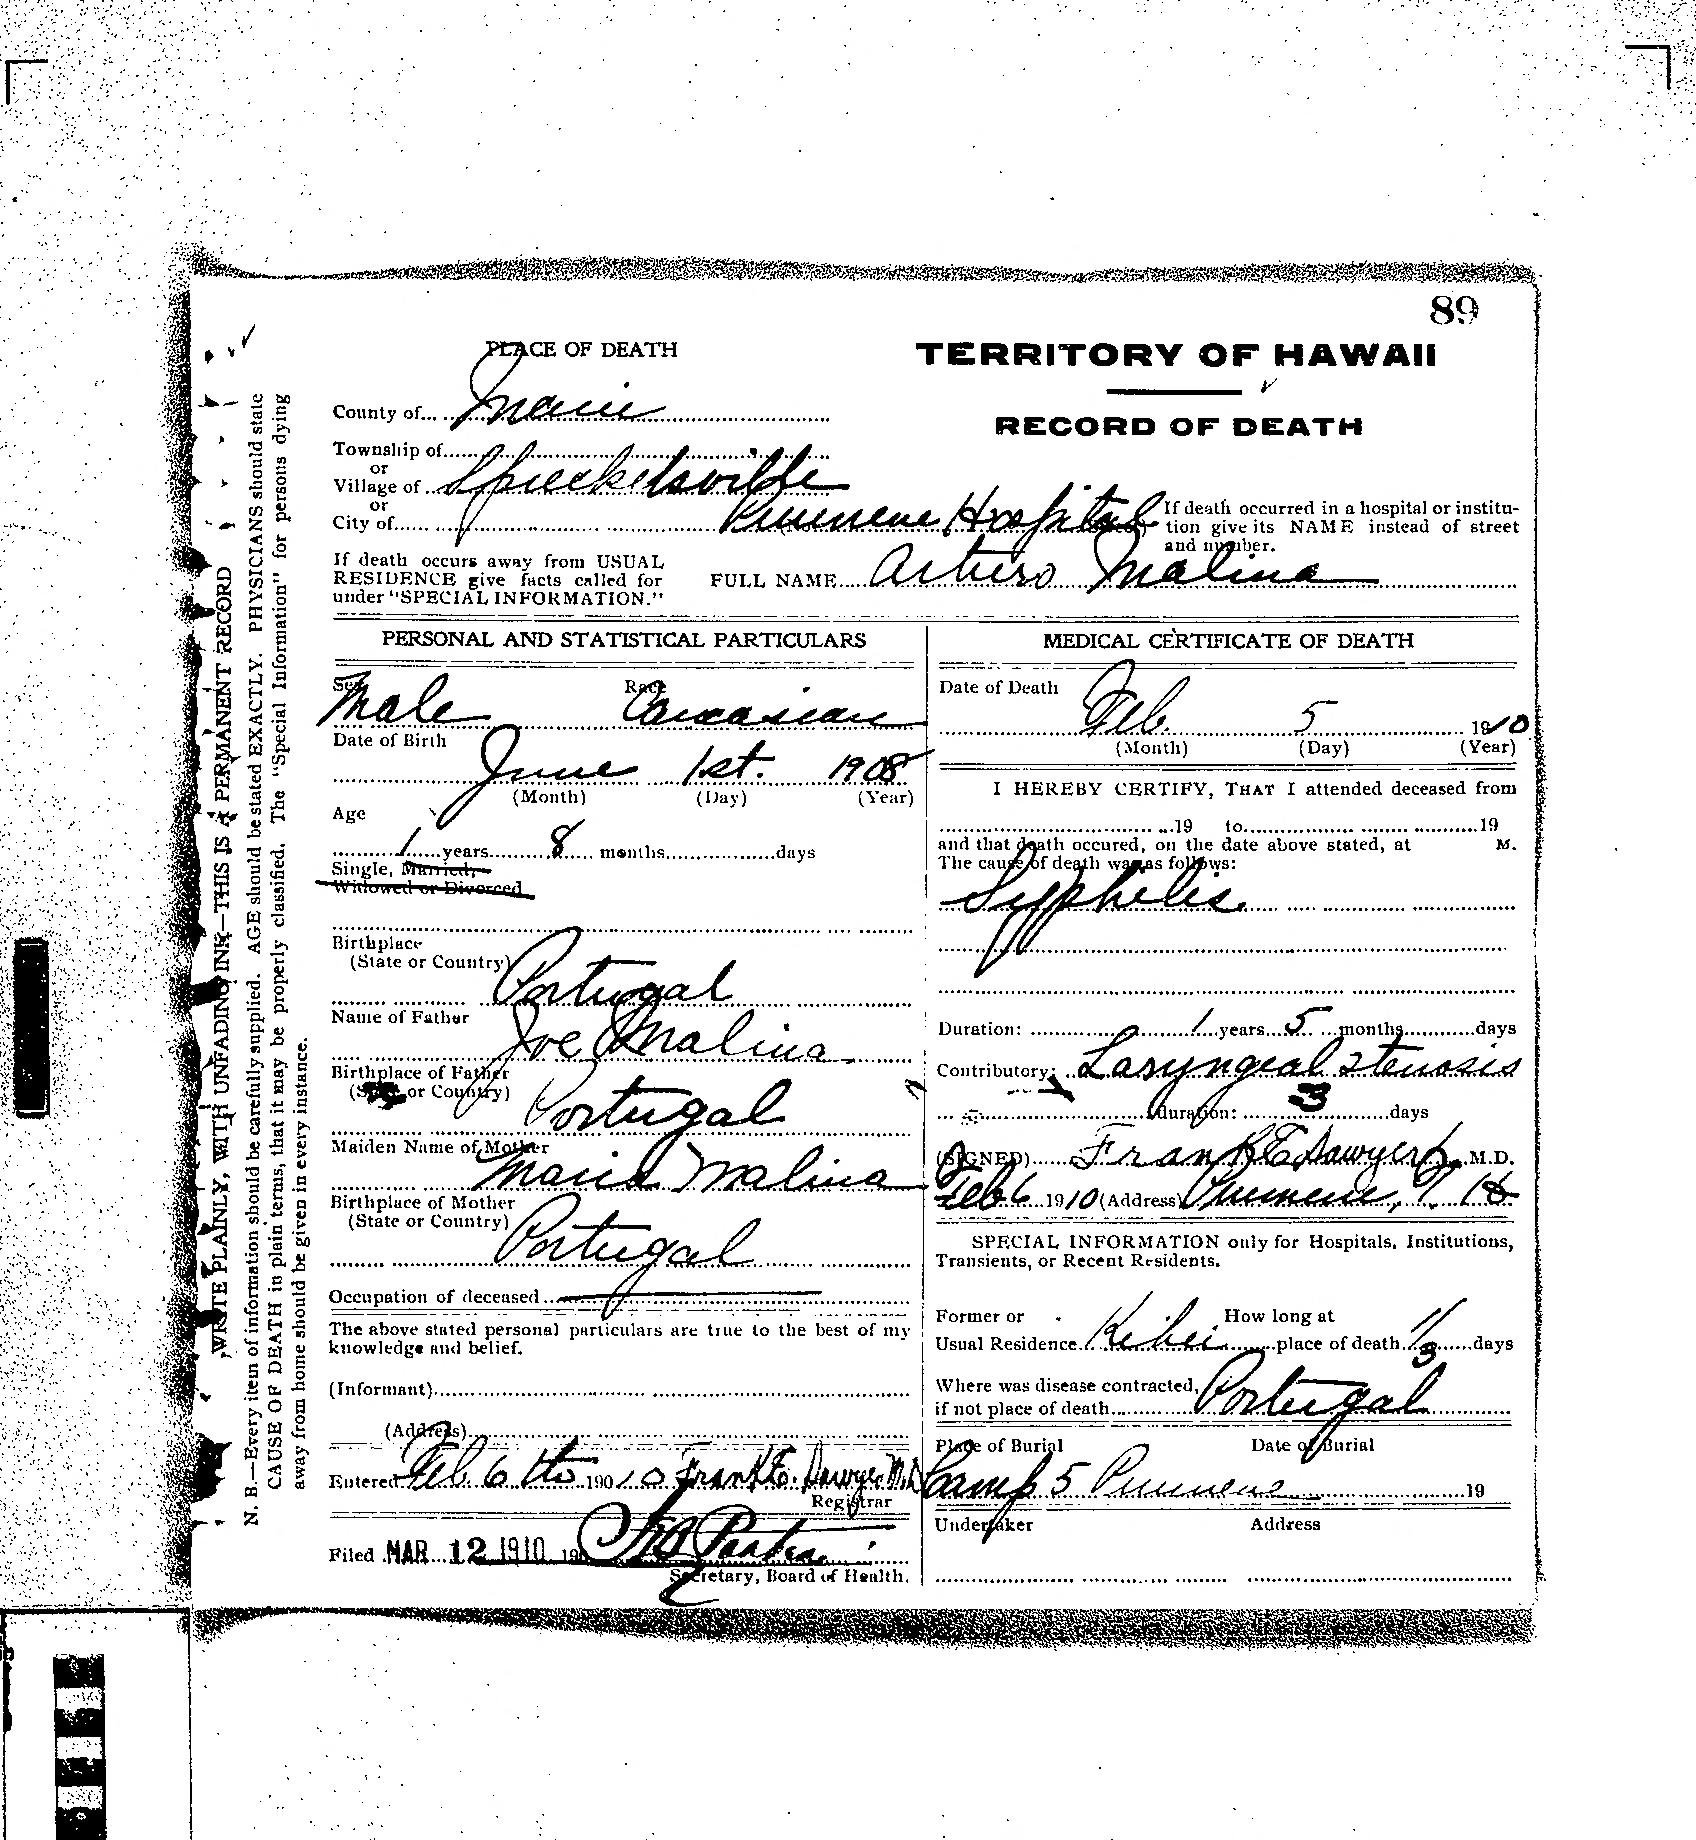 89
PLACE OF DEATH
TERRITORY OF HAWAII
RECORD OF DEATH
County of Maui
Township of
or
Village of Spreckelsville
or
City of
Puunene Hospital
If death occurred in a hospital or institution give its NAME instead of street and number.
If death occurs away from USUAL
RESIDENCE give facts called for
under "SPECIAL INFORMATION."
FULL NAME Arturo Malina
WRITE PLAINLY, WITH UNFADING INK—THIS IS A PERMANENT RECORD
N. B.—Every item of information should be carefully supplied. AGE should be stated EXACTLY. PHYSICIANS should state
CAUSE OF DEATH in plain terms, that it may be properly classified. The "Special Information" for persons dying
away from home should be given in every instance.
PERSONAL AND STATISTICAL PARTICULARS
Sex Race
Male Caucasian
Date of Birth
June 1st. 1908
(Month) (Day) (Year)
Age
1 years 8 months days
Single, Married,
Widowed or Divorced
Birthplace
(State or Country)
Portugal
Name of Father
Joe Malina
Birthplace of Father
(State or Country)
Portugal
Maiden Name of Mother
Maria Malina
Birthplace of Mother
(State or Country)
Portugal
Occupation of deceased
The above stated personal particulars are true to the best of my
knowledge and belief.
(Informant)
(Address)
Entered Feb. 6 th 190 10 Frank E. Sawyer M.D.
Registrar
Filed MAR 12 1910 190
Secretary, Board of Health.
MEDICAL CERTIFICATE OF DEATH
Date of Death
Feb. 5 1910
(Month) (Day) (Year)
I HEREBY CERTIFY, THAT I attended deceased from
19 to 19
and that death occured, on the date above stated, at M.
The cause of death was as follows:
Syphelis.
Duration: 1 years 5 months days
Contributory: Laryngeal stenosis
duration: 3 days
(SIGNED) Frank E Sawyer M.D.
Feb 6 1910 (Address) Puunene,
SPECIAL INFORMATION only for Hospitals, Institutions,
Transients, or Recent Residents.
Former or How long at
Usual Residence Kihei place of death 1/3 days
Where was disease contracted,
if not place of death Portugal
Place of Burial Date of Burial
Camp 5 Puunene 19
Undertaker Address